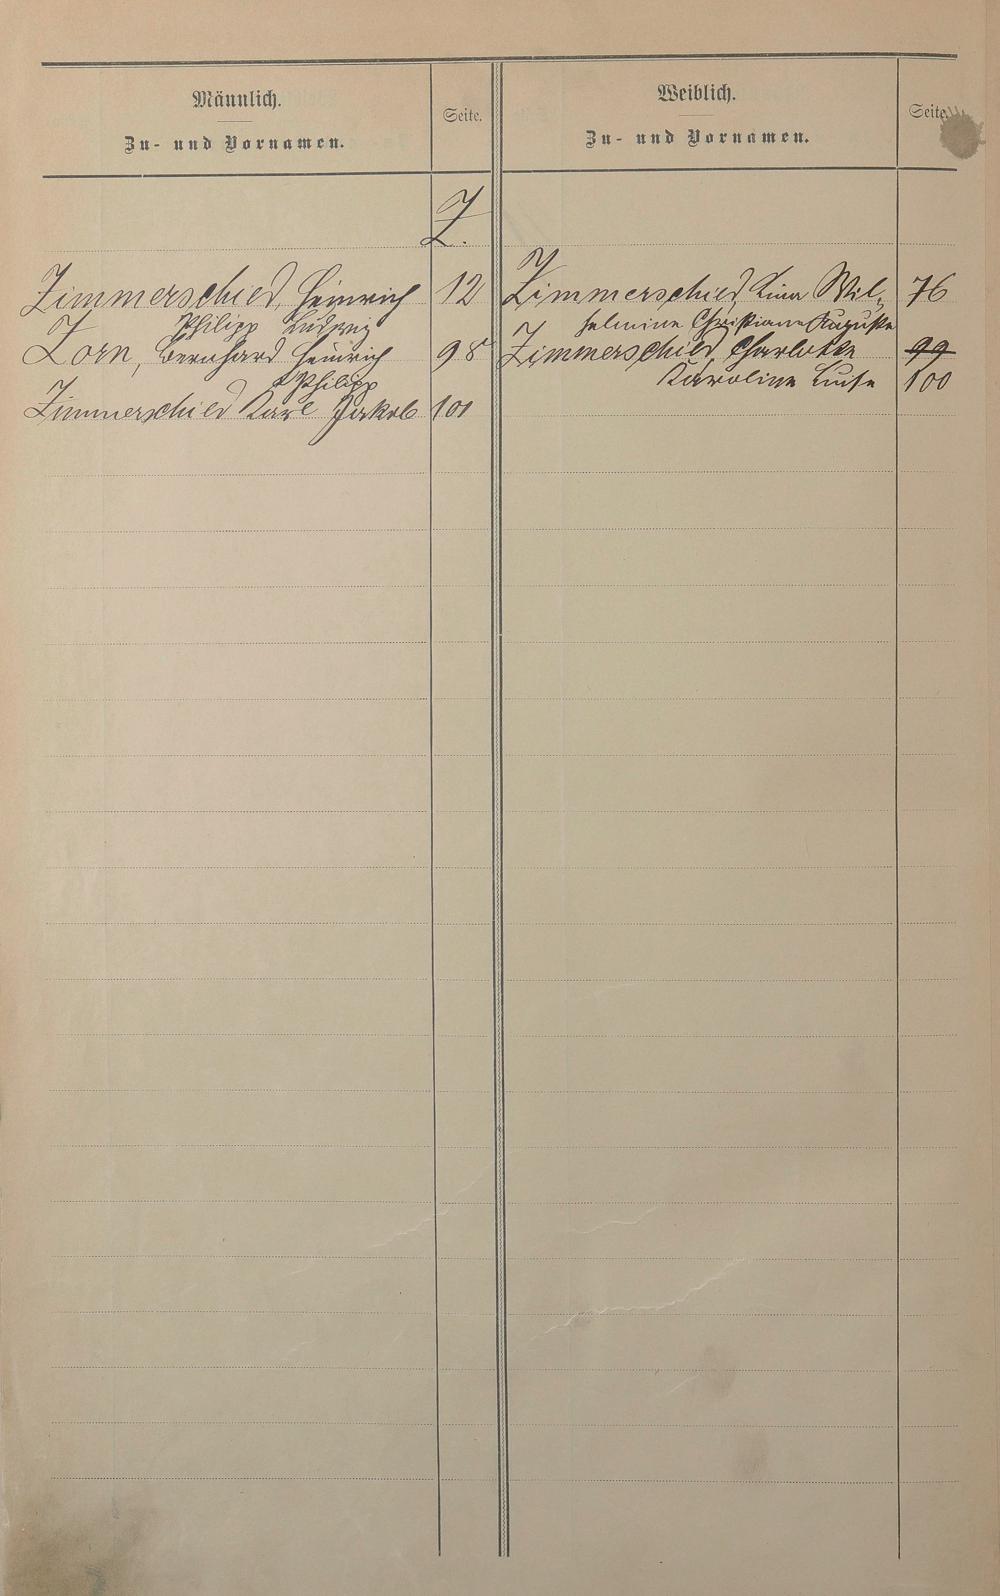 Männlich.
Zu- und Vornamen.
Seite.
Weiblich.
Zu- und Vornamen.
Seite.
Z.
Zimmerschied, Heinrich 12
Philipp Ludwig
Zorn, Bernhard Heinrich 98
Philipp
Zimmerschied Karl Jakob 101
Zimmerschied, Lina Wil- 76
helmine Christiane Auguste
Zimmerschied, Charlotte 99
Karoline Luise 100